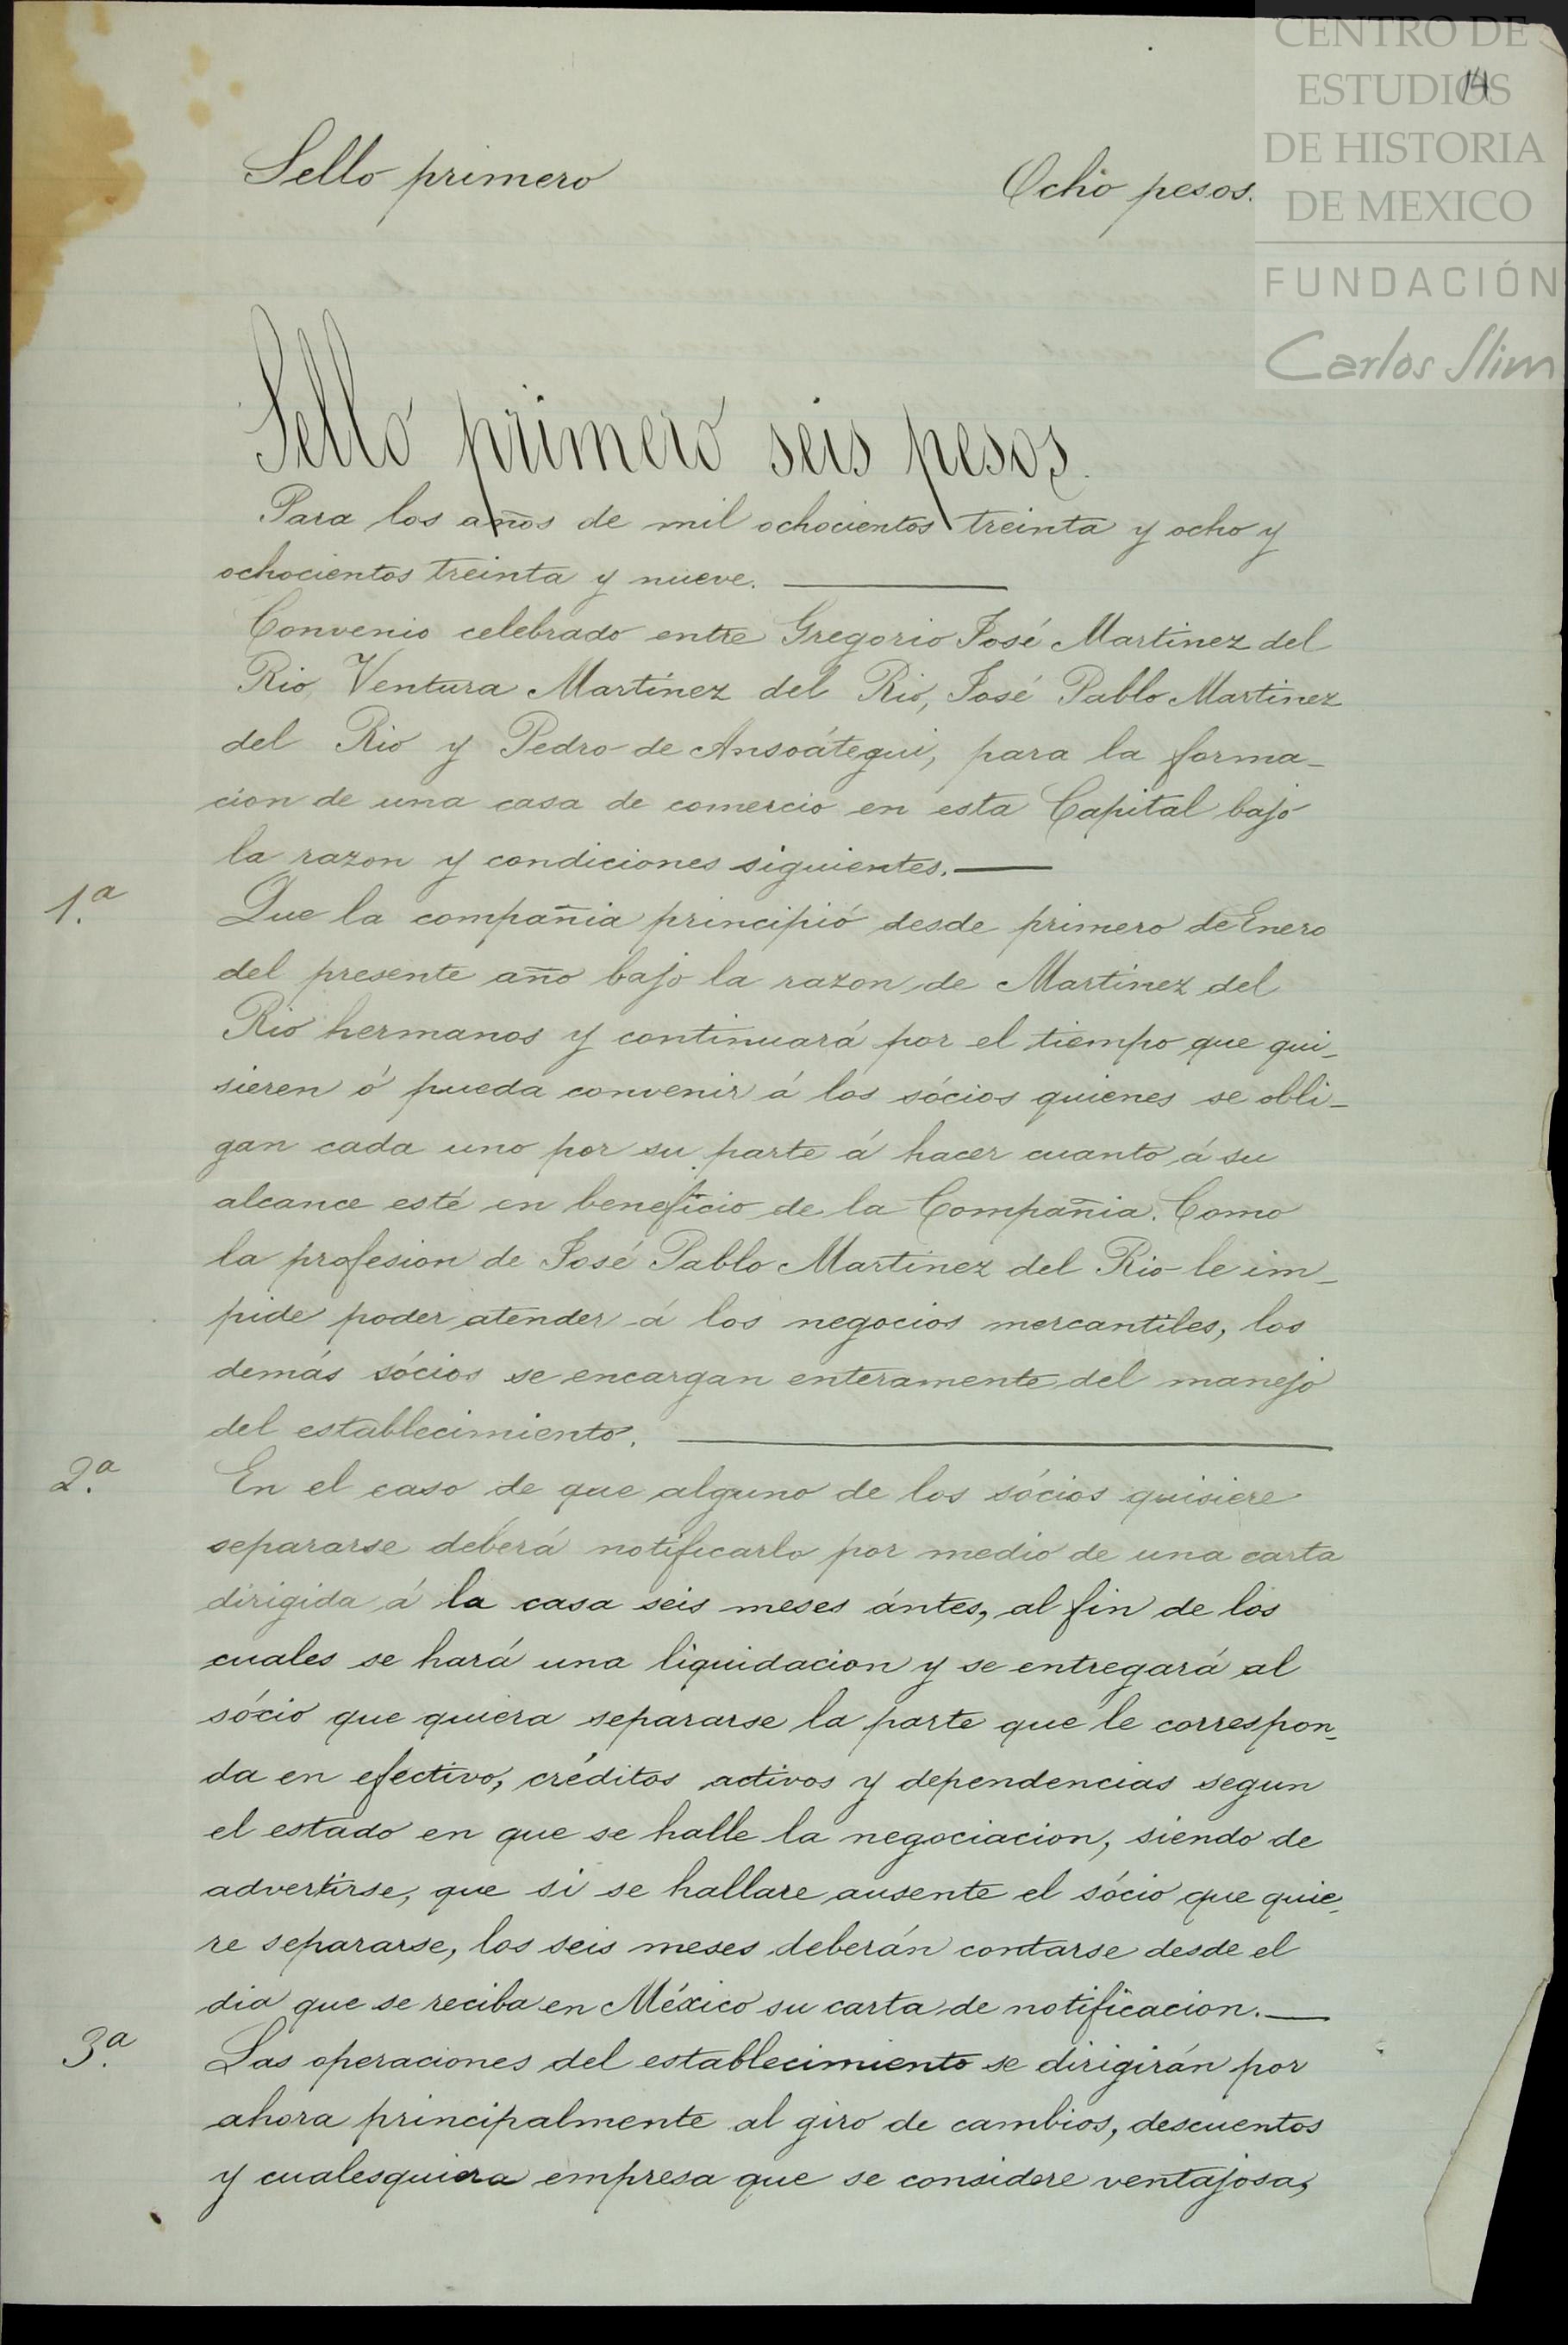 CENTRO DE
ESTUDIOS
DE HISTORIA
DE MEXICO
FUNDACIÓN
Carlos Slim
14
Sello primero Ocho pesos.
Sello primero seis pesos.
Para los años de mil ochocientos treinta y ocho y
ochocientos treinta y nueve.
Convenio celebrado entre Gregorio José Martinez del
Rio, Ventura Martínez del Rio, José Pablo Martinez
del Rio y Pedro de Ansoátegui, para la forma-
cion de una casa de comercio en esta Capital bajo
la razon y condiciones siguientes.
1.a Que la compañia principió desde primero de Enero
del presente año bajo la razon de Martinez del
Rio hermanos y continuará por el tiempo que qui-
sieren ó pueda convenir á los sócios quienes se obli-
gan cada uno por su parte á hacer cuanto á su
alcance esté en beneficio de la Compañia. Como
la profesion de José Pablo Martinez del Rio le im-
pide poder atender á los negocios mercantiles, los
demás sócios se encargan enteramente del manejo
del establecimiento.
2.a En el caso de que alguno de los sócios quisiere
separarse deberá notificarlo por medio de una carta
dirigida á la casa seis meses ántes, al fin de los
cuales se hará una liquidacion y se entregará al
sócio que quiera separarse la parte que le correspon-
da en efectivo, créditos activos y dependencias segun
el estado en que se halle la negociacion, siendo de
advertirse, que si se hallare ausente el sócio que quie-
re separarse, los seis meses deberán contarse desde el
dia que se reciba en México su carta de notificacion.
3.a Las operaciones del establecimiento se dirigirán por
ahora principalmente al giro de cambios, descuentos
y cualesquiera empresa que se considere ventajosa,